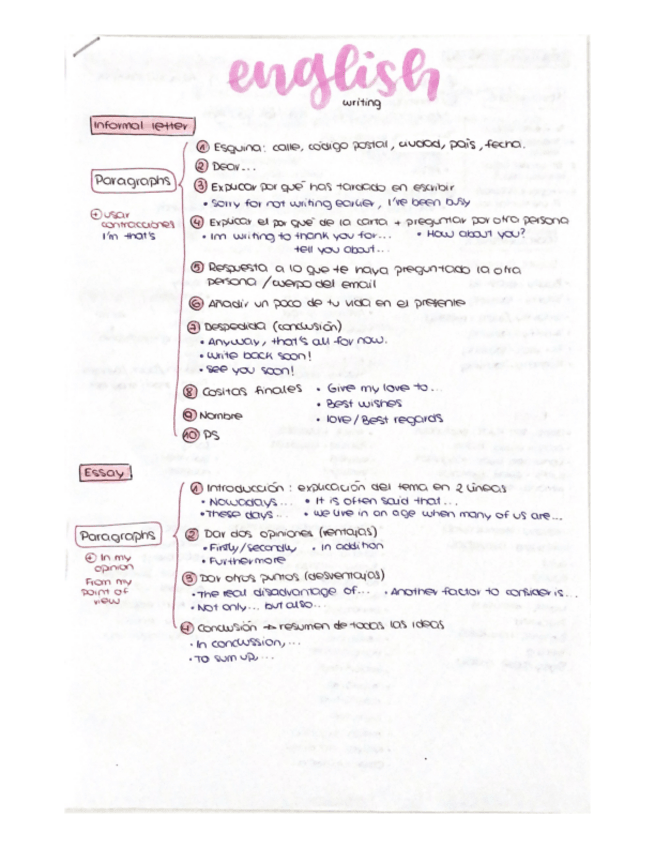 english
writing
Informal letter
Paragraphs
+ usar
contracciones
I'm that's
1 Esquina: calle, código postal, ciudad, país, fecha.
2 Dear...
3 Explicar por qué has tardado en escribir
• Sorry for not writing earlier, I've been busy
4 Explicar el por qué de la carta + preguntar por otra persona
• Im writing to thank you for... • How about you?
tell you about...
5 Respuesta a lo que te haya preguntado la otra
persona / cuerpo del email
6 Añadir un poco de tu vida en el presente
7 Despedida (conclusión)
• Anyway, that's all for now.
• Write back soon!
• See you soon!
8 Cositas finales • Give my love to...
• Best wishes
9 Nombre • love/Best regards
10 PS
Essay
Paragraphs
+ In my
opinion
From my
point of
view
1 Introducción: explicación del tema en 2 líneas
• Nowadays... • It is often said that...
• These days... • We live in an age when many of us are...
2 Dar dos opiniones (ventajas)
• Firstly/secondly • In addition
• Furthermore
3 Dar otros puntos (desventajas)
• The real disadvantage of... • Another factor to consider is...
• Not only... but also...
4 Conclusión → resumen de todas las ideas
• In conclussion,...
• To sum up,...